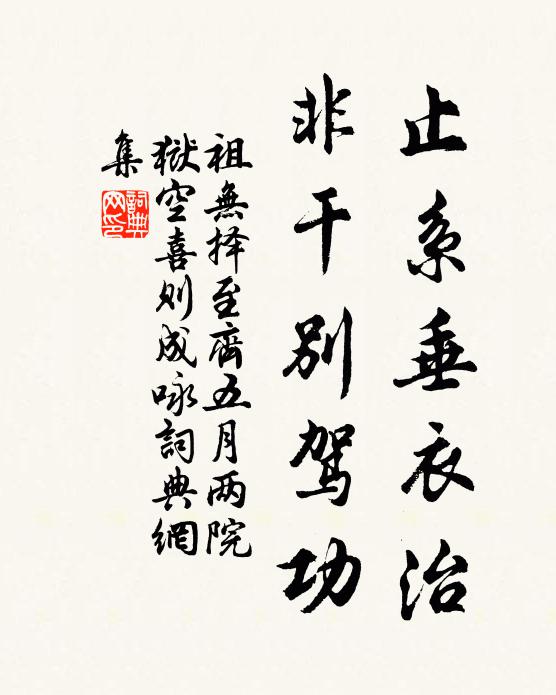 止系垂衣治
非干别驾功
祖無择至齊五月两院
獄空喜则成咏詞典網
集
詞典
网印